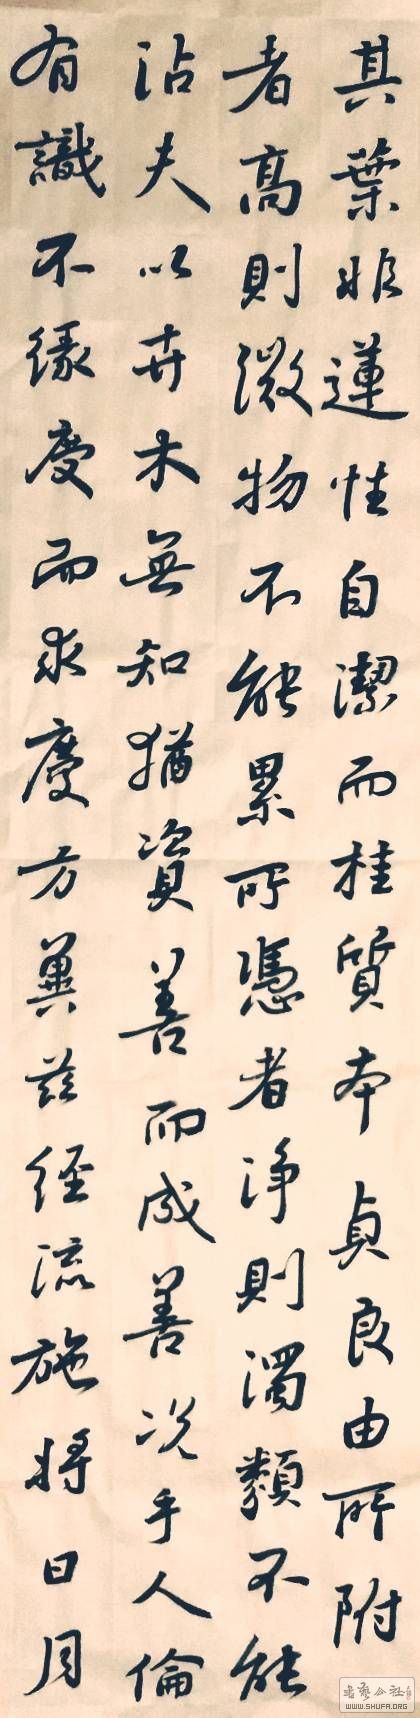 其葉非蓮性自潔而桂質本貞良由所附
者高則微物不能累所憑者淨則濁類不能
沾夫以卉木無知猶資善而成善況乎人倫
有識不緣慶而求慶方冀茲經流施將日月
書藝公社
WWW.SHUFA.ORG